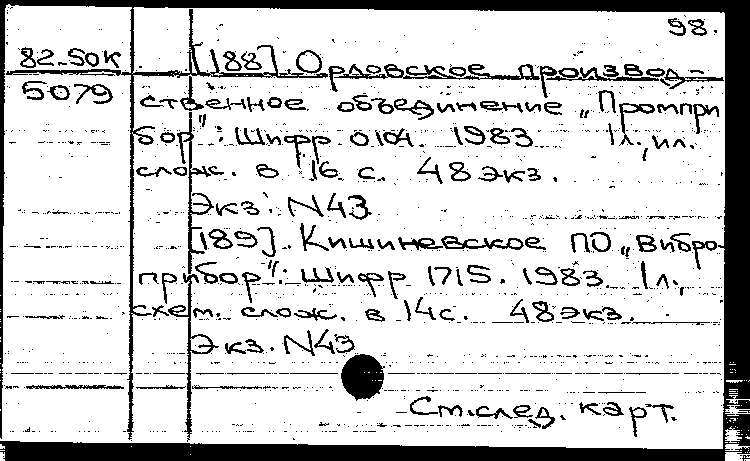 98.
82-50к [188]. Орловское производ-
5079 ственное объединение „Промпри
бор": Шифр 0104. 1983 1л., ил.
слож. в 16 с. 48 экз.
Экз. N43
[189]. Кишиневское ПО „Вибро-
прибор": Шифр 1715. 1983 1л.,
схем. слож. в 14с. 48экз.
Экз. N43
См.след. карт.